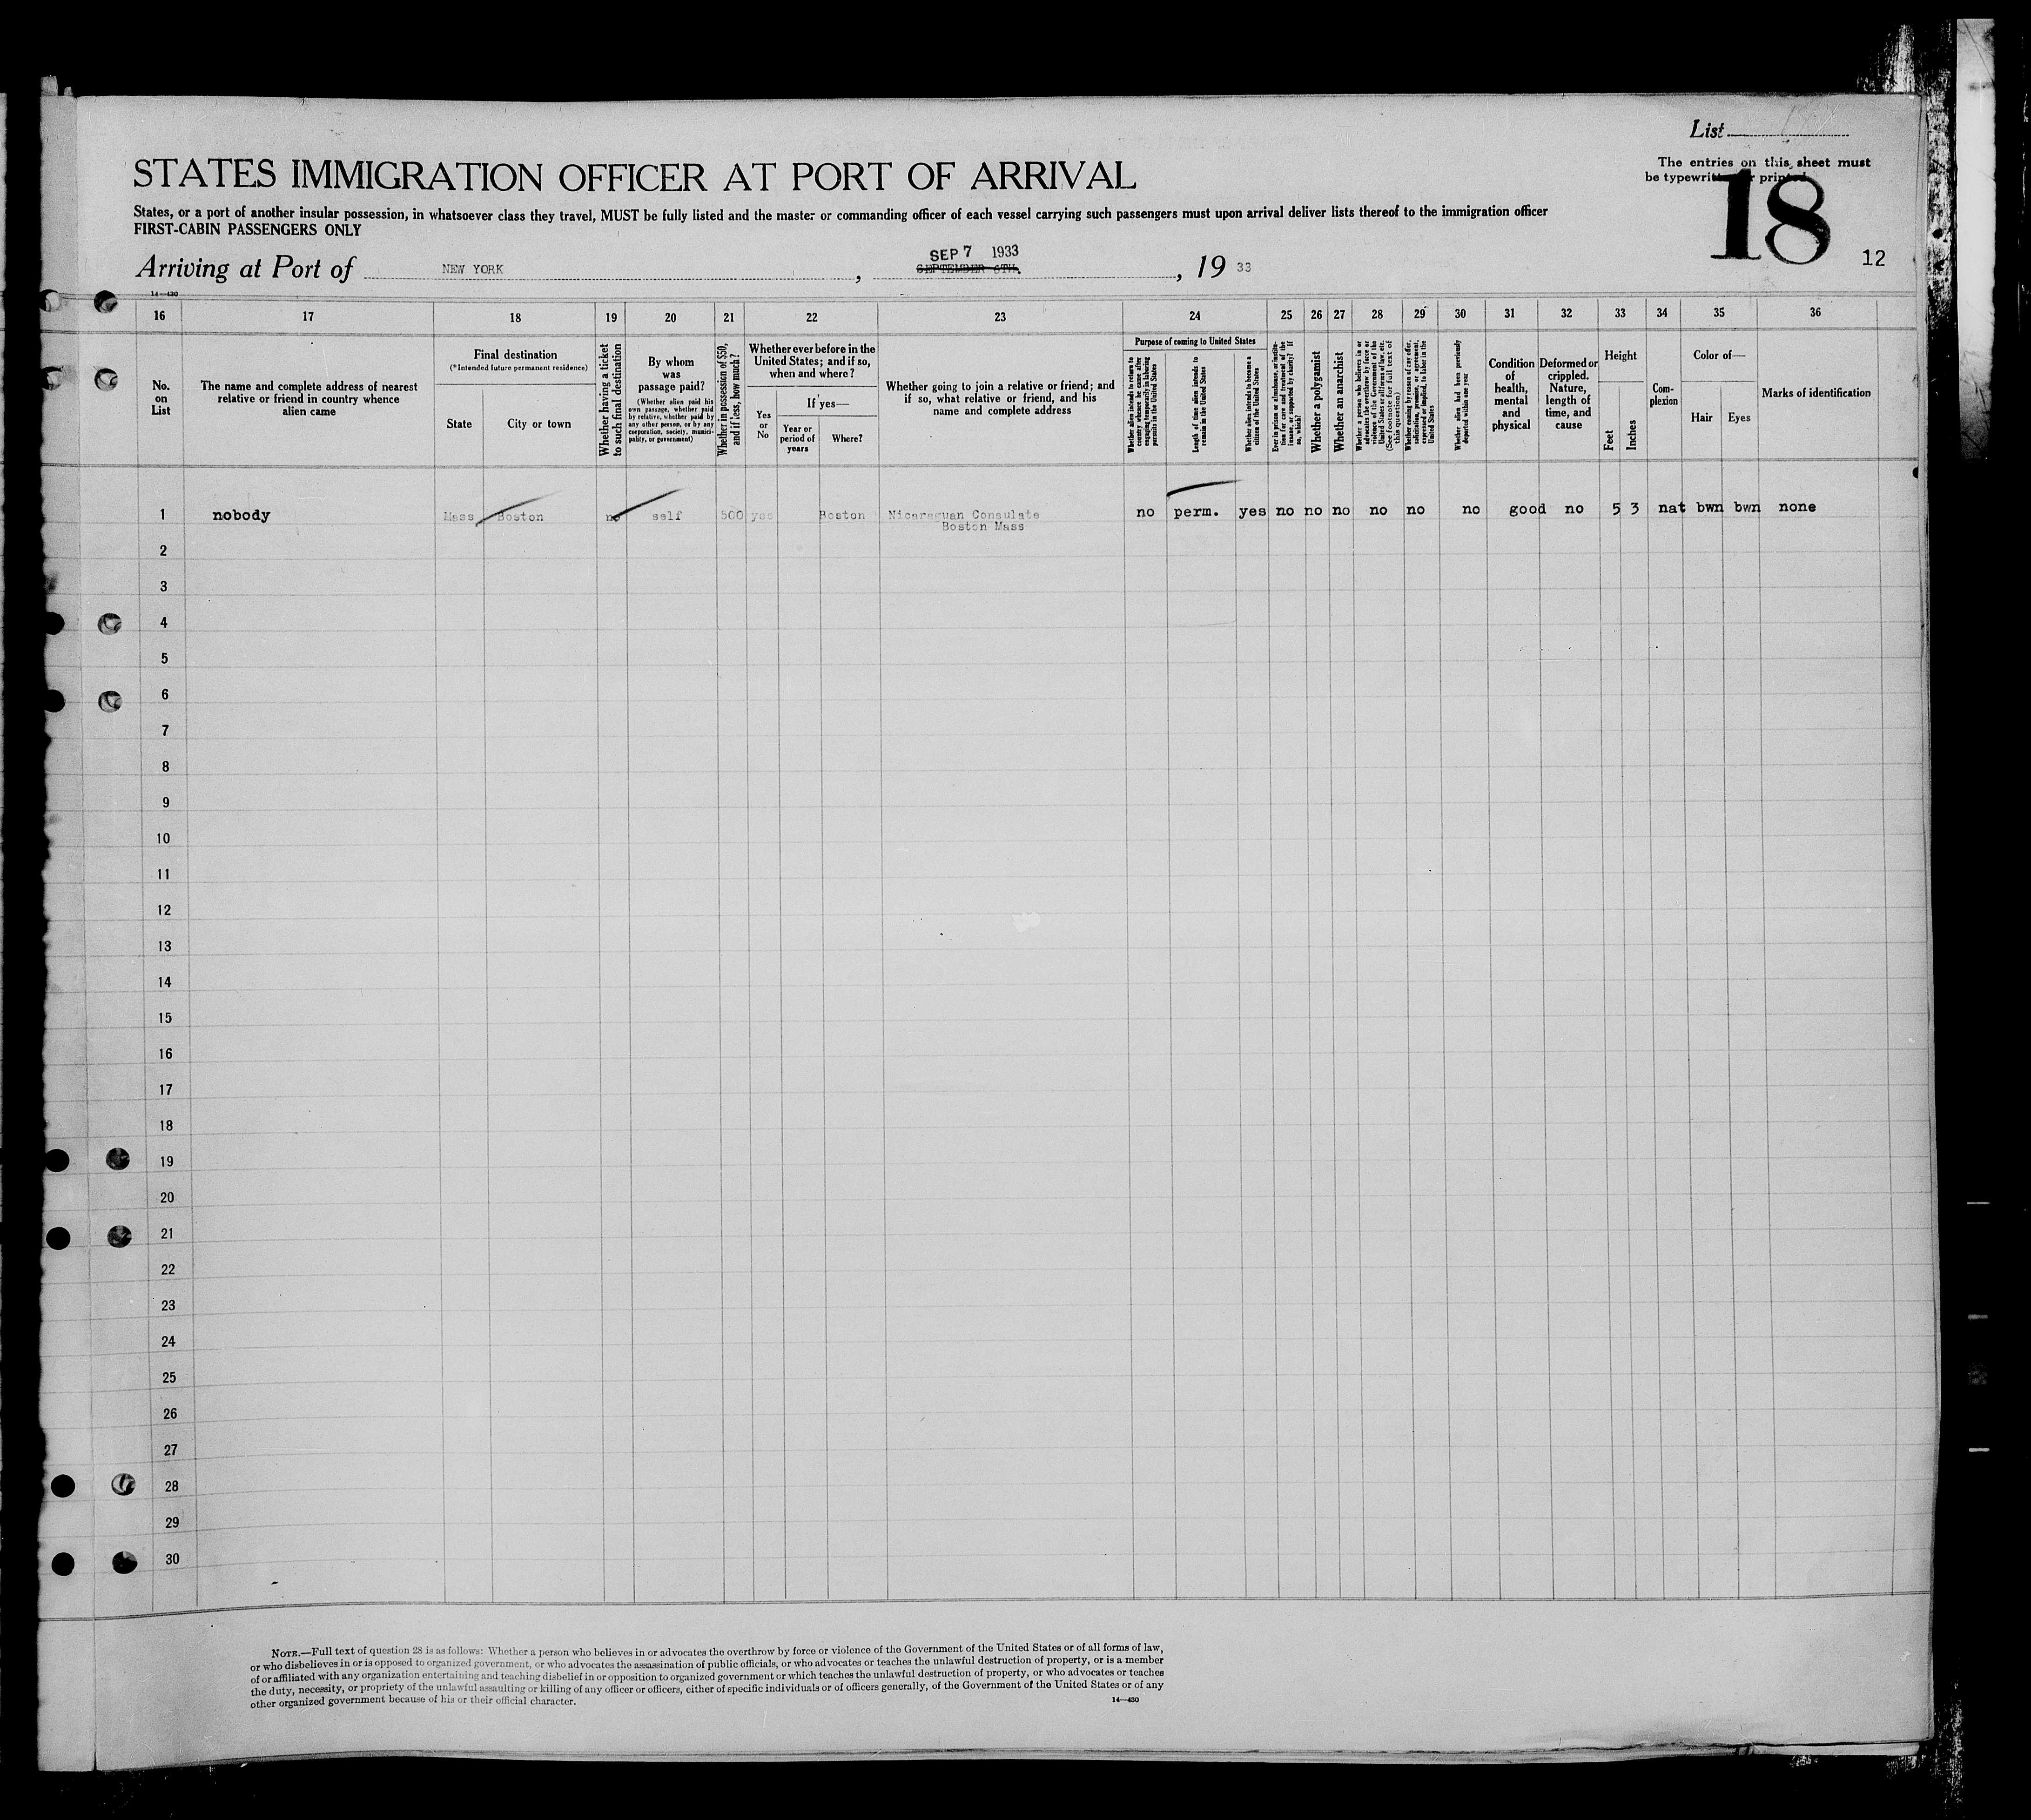 List
The entries on this sheet must
be typewritten or printed
18
12
STATES IMMIGRATION OFFICER AT PORT OF ARRIVAL
States, or a port of another insular possession, in whatsoever class they travel, MUST be fully listed and the master or commanding officer of each vessel carrying such passengers must upon arrival deliver lists thereof to the immigration officer
FIRST-CABIN PASSENGERS ONLY
SEP 7 1933
Arriving at Port of NEW YORK, SEPTEMBER 6TH., 19 33
14—430
16 17 18 19 20 21 22 23 24 25 26 27 28 29 30 31 32 33 34 35 36
No. on List
The name and complete address of nearest
relative or friend in country whence
alien came
Final destination
(*Intended future permanent residence)
State
City or town
Whether having a ticket
to such final destination
By whom
was
passage paid?
(Whether alien paid his
own passage, whether paid
by relative, whether paid by
any other person, or by any
corporation, society, munici-
pality, or government)
Whether in possession of $50,
and if less, how much?
Whether ever before in the
United States; and if so,
when and where?
Yes
or
No
If yes—
Year or
period of
years
Where?
Whether going to join a relative or friend; and
if so, what relative or friend, and his
name and complete address
Purpose of coming to United States
Whether alien intends to return to
country whence he came after
engaging temporarily in laboring
pursuits in the United States
Length of time alien intends to
remain in the United States
Whether alien intends to become a
citizen of the United States
Ever in prison or almshouse, or institu-
tion for care and treatment of the
insane, or supported by charity? If
so, which?
Whether a polygamist
Whether an anarchist
Whether a person who believes in or
advocates the overthrow by force or
violence of the Government of the
United States or all forms of law, etc.
(See footnote for full text of
this question)
Whether coming by reason of any offer,
solicitation, promise, or agreement,
expressed or implied, to labor in the
United States
Whether alien had been previously
deported within one year
Condition
of
health,
mental
and
physical
Deformed or
crippled.
Nature,
length of
time, and
cause
Height
Feet
Inches
Com-
plexion
Color of—
Hair
Eyes
Marks of identification
1 nobody Mass Boston no self 500 yes Boston Nicaraguan Consulate no perm. yes no no no no no no good no 5 3 nat bwn bwn none
Boston Mass
2
3
4
5
6
7
8
9
10
11
12
13
14
15
16
17
18
19
20
21
22
23
24
25
26
27
28
29
30
NOTE.—Full text of question 28 is as follows: Whether a person who believes in or advocates the overthrow by force or violence of the Government of the United States or of all forms of law,
or who disbelieves in or is opposed to organized government, or who advocates the assassination of public officials, or who advocates or teaches the unlawful destruction of property, or is a member
of or affiliated with any organization entertaining and teaching disbelief in or opposition to organized government or which teaches the unlawful destruction of property, or who advocates or teaches
the duty, necessity, or propriety of the unlawful assaulting or killing of any officer or officers, either of specific individuals or of officers generally, of the Government of the United States or of any
other organized government because of his or their official character.
14—430